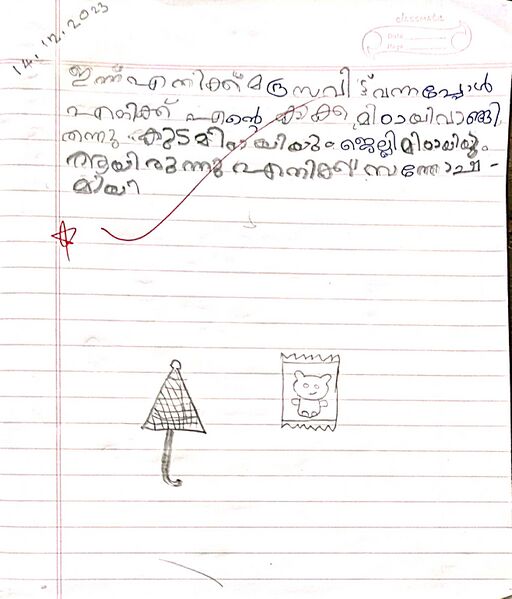 14.12.2023
classmate
Date
Page
ഇന്ന് എനിക്ക് മദ്രസ വിട്ട് വന്നപ്പോൾ
എനിക്ക് എൻ്റെ കാക്ക മിഠായി വാങ്ങി
തന്നു. കുട മിഠായിയും ജെല്ലി മിഠായിയും
ആയിരുന്നു എനിക്ക് സന്തോഷ -
മായി